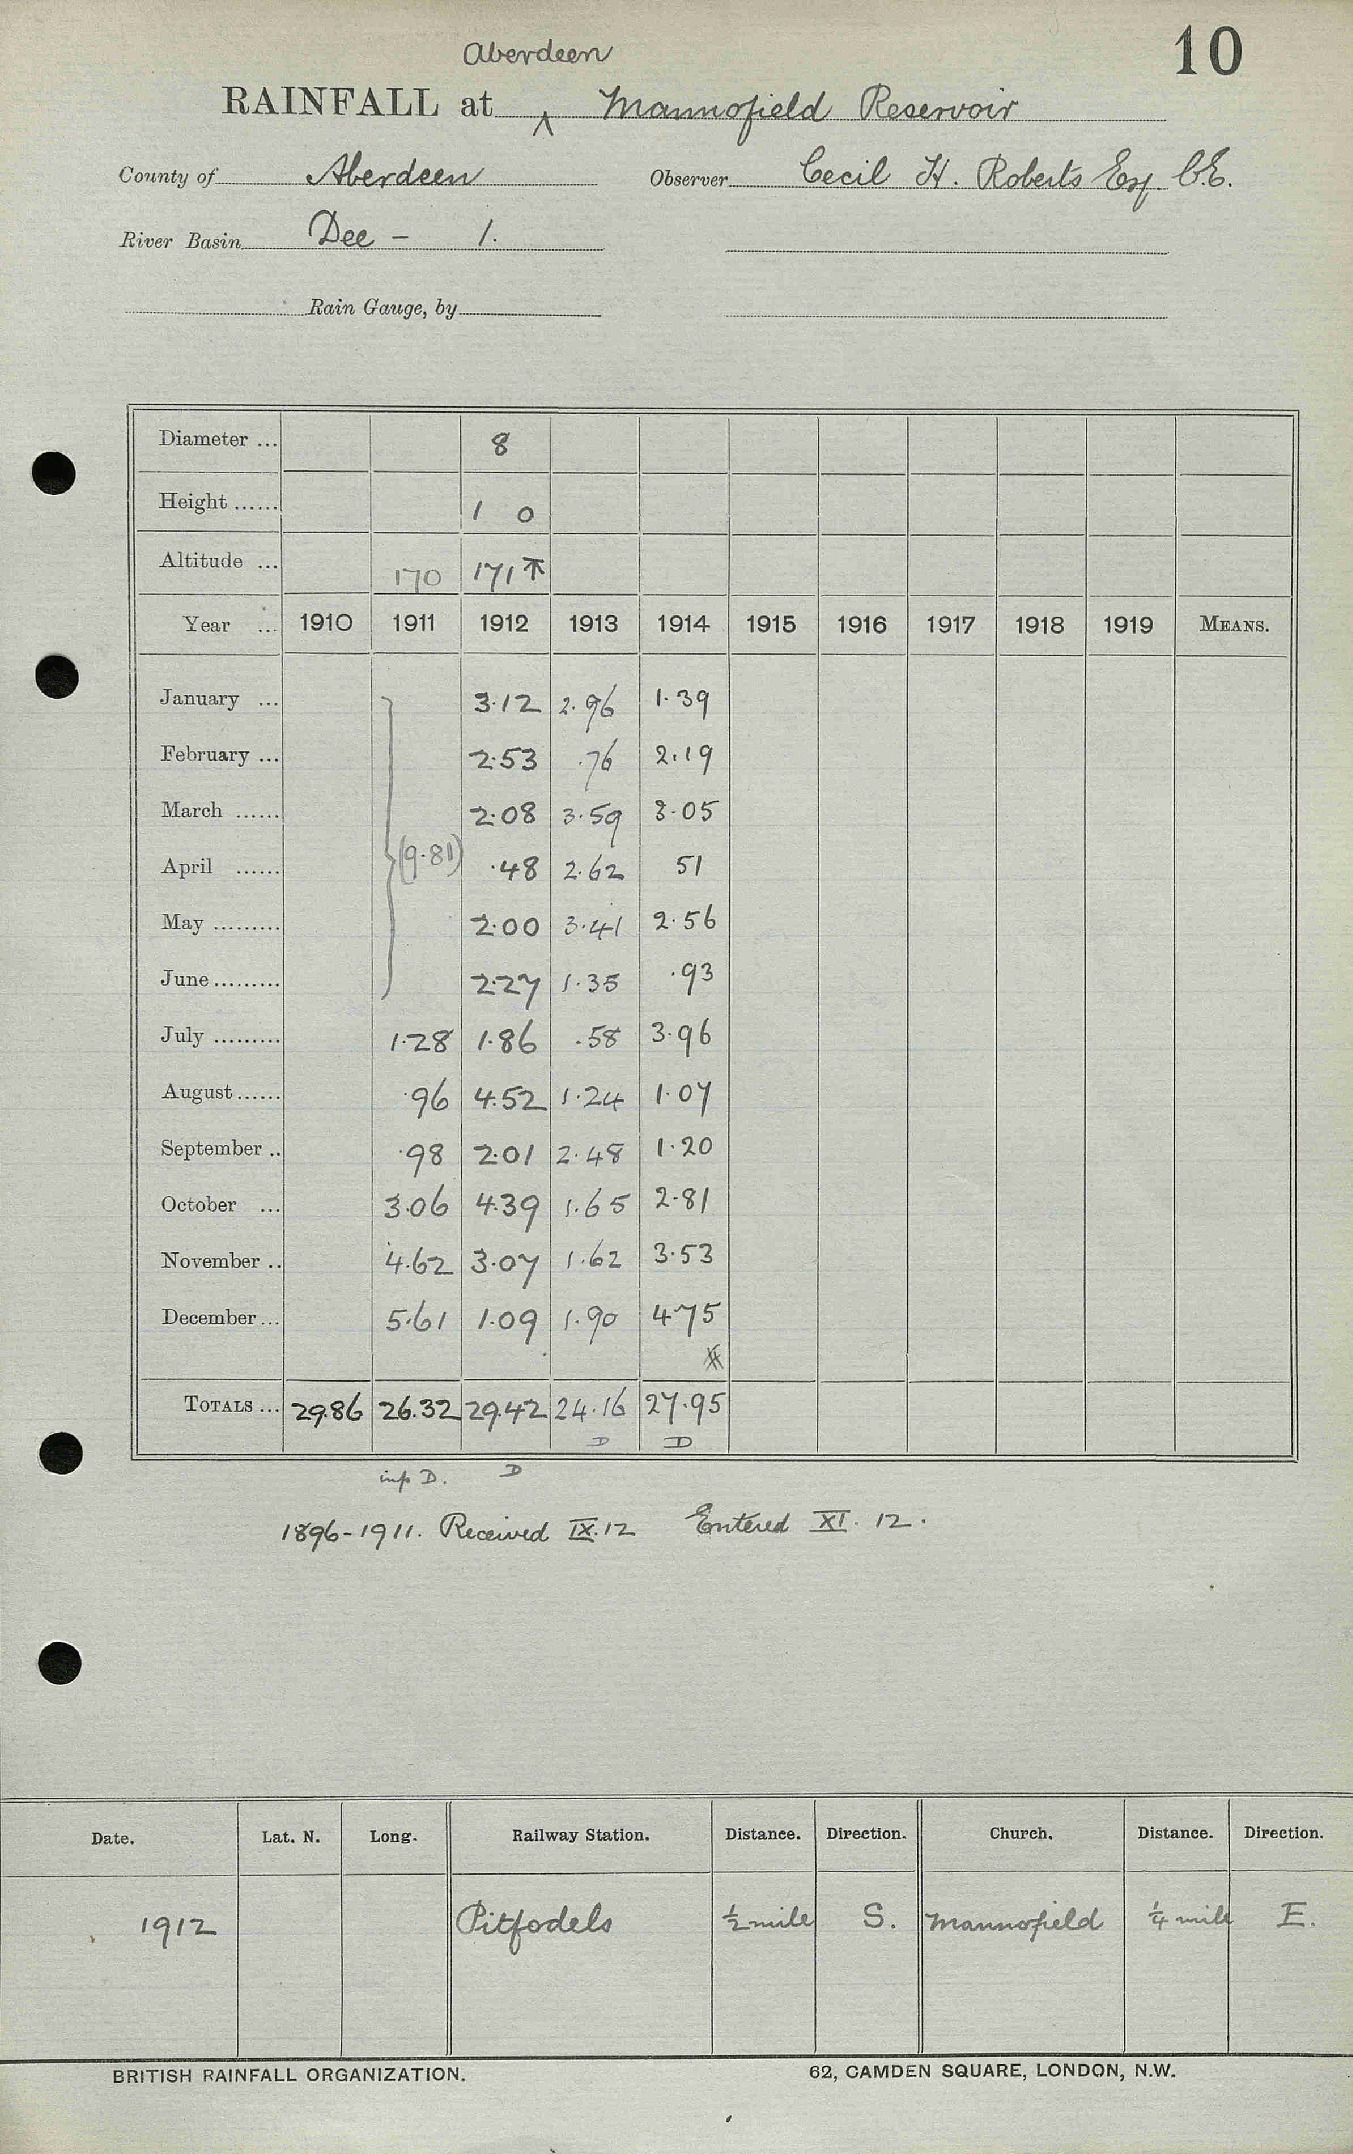 10
Aberdeen
RAINFALL at ^ Mannofield Reservoir
County of Aberdeen Observer Cecil H. Roberts Esq. C.E.
River Basin Dee - 1.
Rain Gauge, by
Diameter ... 8
Height ...... 1 0
Altitude ... 170 171 ⊼
Year ... 1910 1911 1912 1913 1914 1915 1916 1917 1918 1919 MEANS.
January ... 3.12 2.96 1.39
February ... 2.53 .76 2.19
March ...... 2.08 3.59 3.05
April ...... (9.81) .48 2.62 51
May ......... 2.00 3.41 2.56
June ......... 2.27 1.35 .93
July ......... 1.28 1.86 .58 3.96
August ...... .96 4.52 1.24 1.07
September .. .98 2.01 2.48 1.20
October ... 3.06 4.39 1.65 2.81
November .. 4.62 3.07 1.62 3.53
December ... 5.61 1.09 1.90 4.75
TOTALS ... 29.86 26.32 29.42 24.16 27.95
D D
inf D. D
1896-1911. Received IX.12 Entered XI. 12.
Date. Lat. N. Long. Railway Station. Distance. Direction. Church. Distance. Direction.
1912 Pitfodels ½ mile S. Mannofield ¼ mile E.
BRITISH RAINFALL ORGANIZATION. 62, CAMDEN SQUARE, LONDON, N.W.